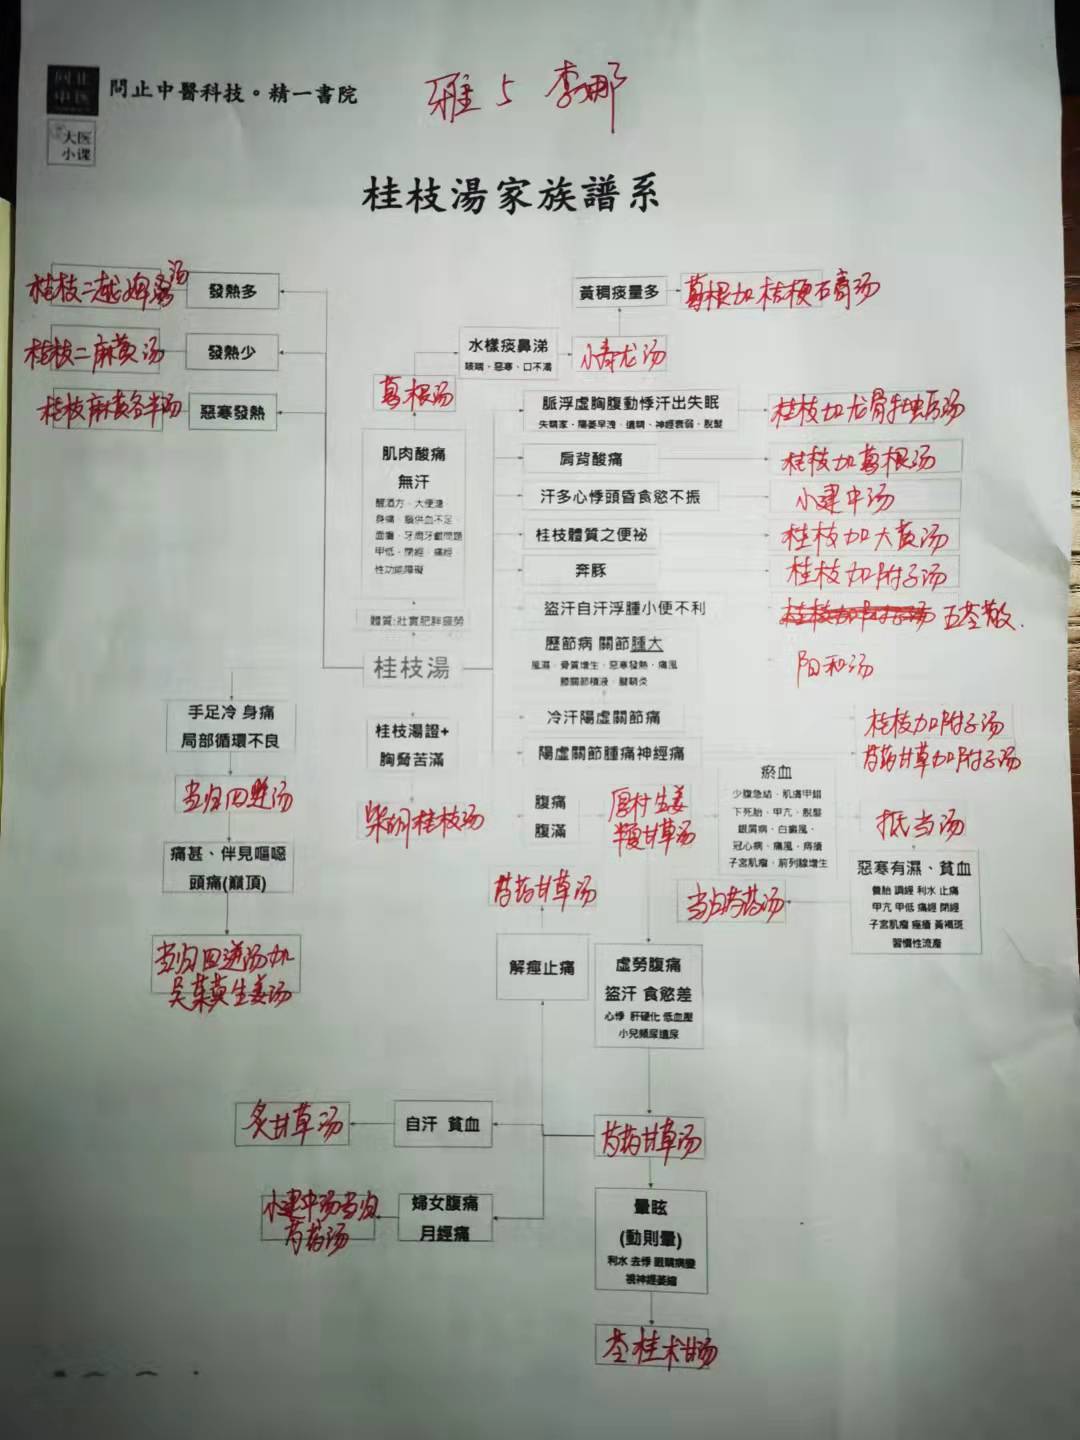 問止中醫科技。精一書院
雅5 李娜
大医
小课
桂枝湯家族譜系
桂枝二越婢汤
發熱多
黃稠痰量多
葛根加桔梗石膏汤
桂枝二麻黄汤
發熱少
水樣痰鼻涕
咳喘、惡寒、口不渴
小青龙汤
桂枝麻黄各半汤
惡寒發熱
葛根汤
脈浮虛胸腹動悸汗出失眠
失精家、陽萎早洩、遺精、神經衰弱、脫髮
桂枝加龙骨牡蛎汤
肌肉酸痛
無汗
醒酒方、大便溏
身痛、腦供血不足
面癱、牙周牙齦問題
甲低、閉經、痛經
性功能障礙
肩背酸痛
桂枝加葛根汤
汗多心悸頭昏食慾不振
小建中汤
桂枝體質之便祕
桂枝加大黄汤
奔豚
桂枝加附子汤
體質:壯實肥胖疲勞
盜汗自汗浮腫小便不利
桂枝加附子汤 五苓散.
桂枝湯
歷節病 關節腫大
風濕、骨質增生、惡寒發熱、痛風
膝關節積液、腱鞘炎
阳和汤
手足冷 身痛
局部循環不良
桂枝湯證+
胸脅苦滿
冷汗陽虛關節痛
桂枝加附子汤
陽虛關節腫痛神經痛
芍药甘草加附子汤
当归四逆汤
柴胡桂枝汤
腹痛
腹滿
厚朴生姜
半夏甘草汤
瘀血
少腹急結、肌膚甲錯
下死胎、甲亢、脫髮
銀屑病、白癜風、
冠心病、痛風、痔瘡
子宮肌瘤、前列線增生
抵当汤
痛甚、伴見嘔噁
頭痛(巔頂)
芍药甘草汤
当归芍药汤
惡寒有濕、貧血
養胎 調經 利水 止痛
甲亢 甲低 痛經 閉經
子宮肌瘤 痤瘡 黃褐斑
習慣性流產
当归四逆汤加
吴茱萸生姜汤
解痙止痛
虛勞腹痛
盜汗 食慾差
心悸 肝硬化 低血壓
小兒頻尿遺尿
炙甘草汤
自汗 貧血
芍药甘草汤
小建中汤当归
芍药汤
婦女腹痛
月經痛
暈眩
(動則暈)
利水 去悸 眼睛病變
視神經萎縮
苓桂术甘汤